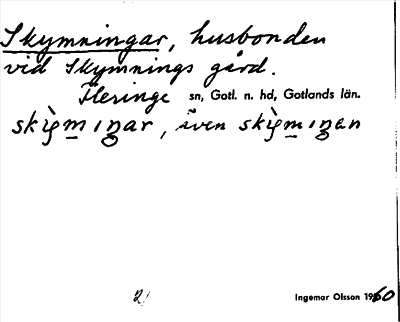 Skymningar, husbonden
vid Skymnings gård.
Fleringe sn, Gotl. n. hd, Gotlands län.
även
Ingemar Olsson 1960